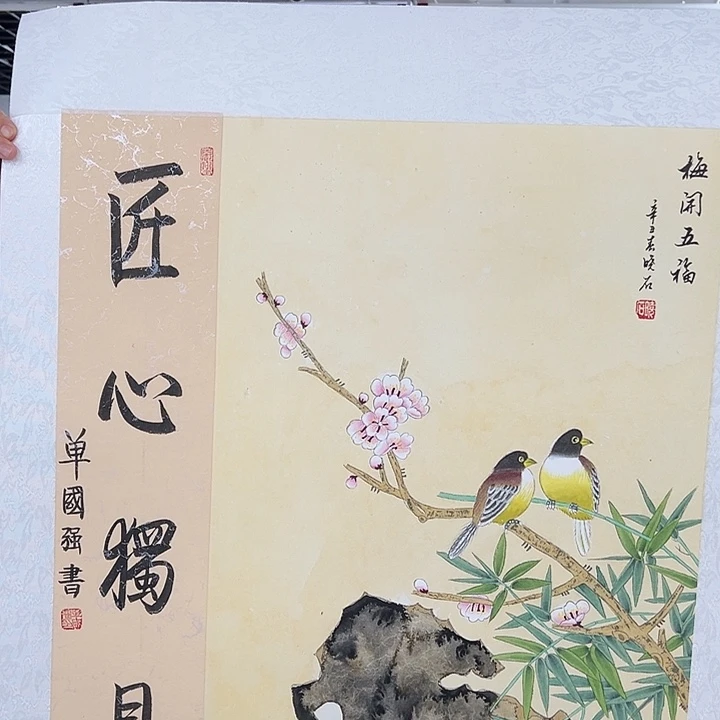 梅開五福
辛丑春曉石
匠心獨
单國强書